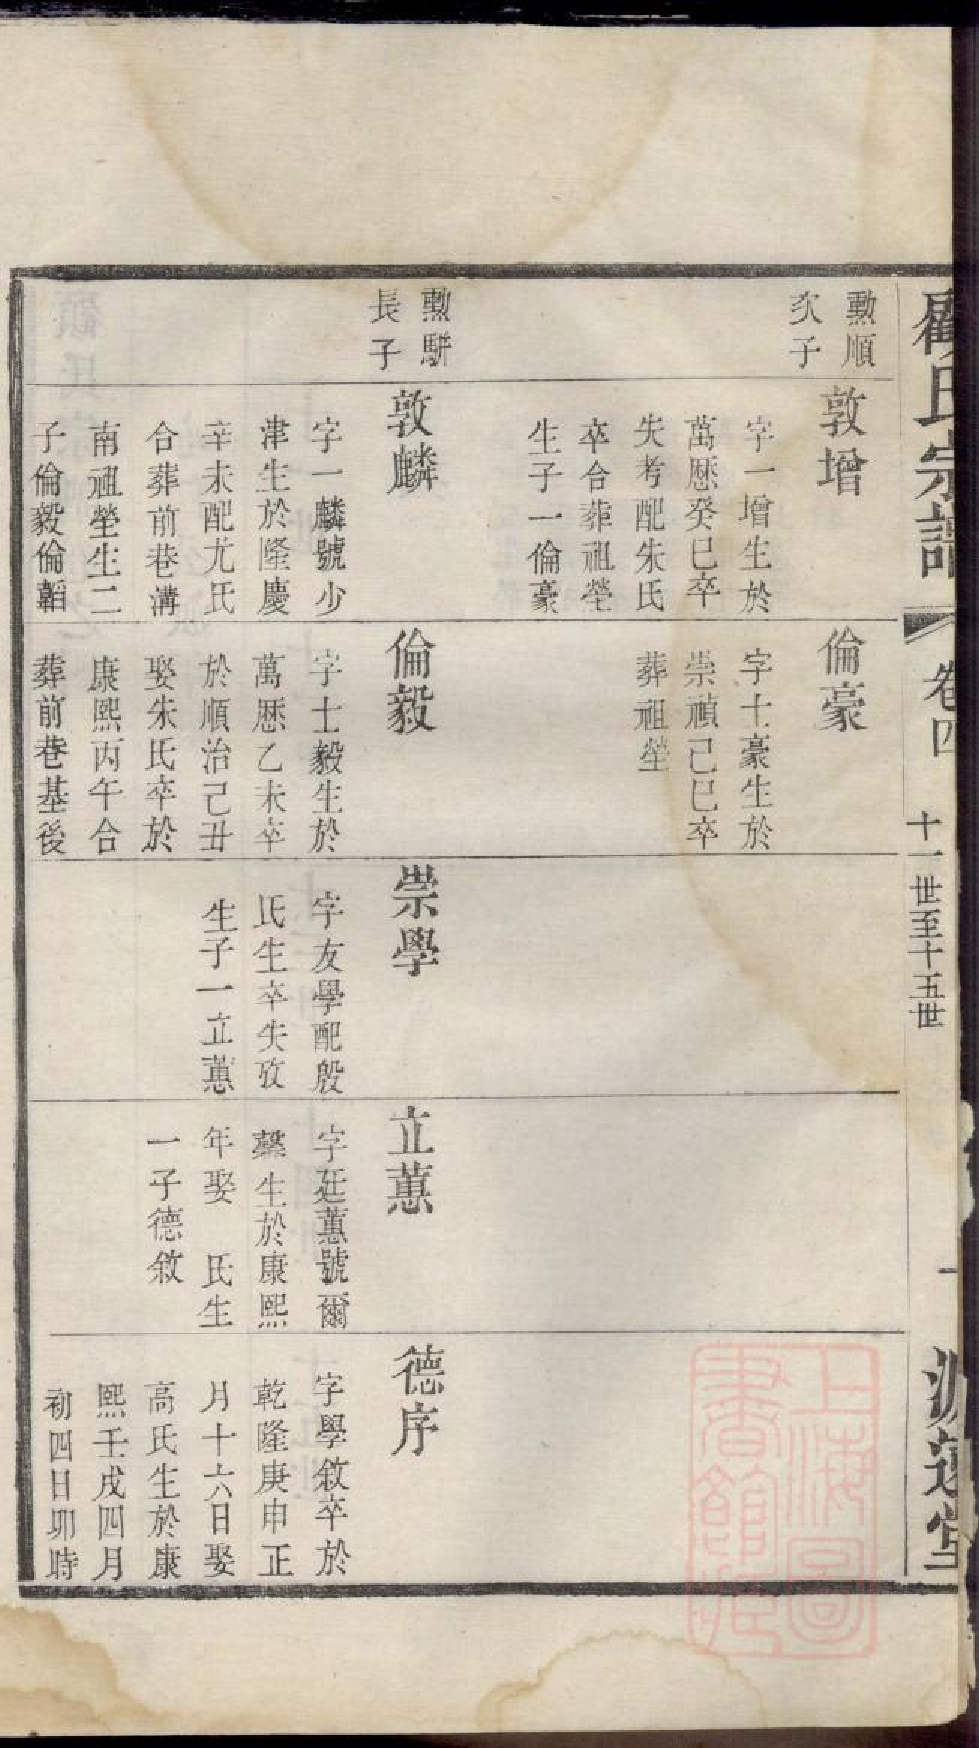 顧氏宗譜
卷四
十一世至十五世
一
源遠堂
勲順
次子
敦增
字一增生於
萬厯癸巳卒
失考配朱氏
卒合葬祖塋
生子一倫豪
倫豪
字士豪生於
崇禎己巳卒
葬祖塋
勲駢
長子
敦麟
字一麟號少
津生於隆慶
辛未配尤氏
合葬前巷溝
南祖塋生二
子倫毅倫韜
倫毅
字士毅生於
萬厯乙未卒
於順治己丑
娶朱氏卒於
康熙丙午合
葬前巷基後
崇學
字友學配殷
氏生卒失攷
生子一立蕙
立蕙
字廷蕙號爾
馨生於康熙
年娶　氏生
一子德敘
德序
字學敘卒於
乾隆庚申正
月十六日娶
高氏生於康
熙壬戌四月
初四日卯時
上海圖
書館藏